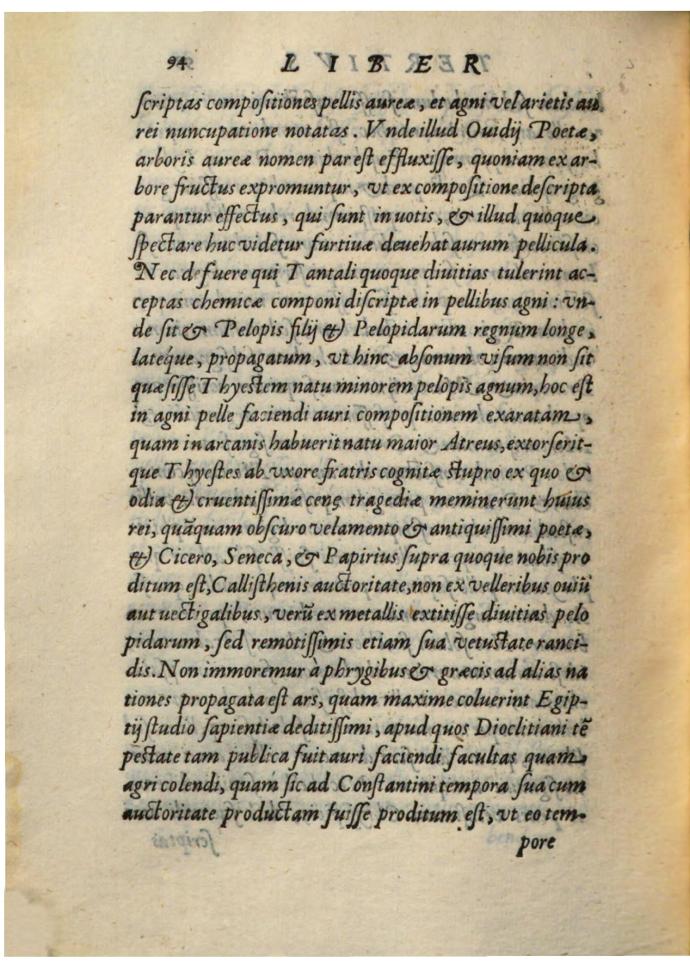 94 LIBER
scriptas compositiones pellis aureæ, et agni vel arietis au
rei nuncupatione notatas. Vnde illud Ouidij Poetæ,
arboris aureæ nomen par est effluxisse, quoniam ex ar-
bore fructus expromuntur, vt ex compositione descripta
parantur effectus, qui sunt in uotis, & illud quoque
spectare huc videtur furtiuæ deuehat aurum pellicula.
Nec defuere qui Tantali quoque diuitias tulerint ac-
ceptas chemicæ componi discriptæ in pellibus agni: vn-
de sit & Pelopis filij & Pelopidarum regnum longe,
latéque, propagatum, vt hinc absonum visum non sit
quæsisse Thyestem natu minorem pelopis agnum, hoc est
in agni pelle faciendi auri compositionem exaratam,
quam in arcanis habuerit natu maior Atreus, extorserit-
que Thyestes ab vxore fratris cognitæ stupro ex quo &
odia & cruentissimæ cenę tragediæ meminerunt huius
rei, quãquam obscuro velamento & antiquissimi poetæ,
& Cicero, Seneca, & Papirius supra quoque nobis pro
ditum est, Callisthenis auctoritate, non ex velleribus ouiũ
aut uectigalibus, verũ ex metallis extitisse diuitias pelo
pidarum, sed remotissimis etiam sua vetustate ranci-
dis. Non immoremur à phrygibus & græcis ad alias na
tiones propagata est ars, quam maxime coluerint Egip-
tij studio sapientiæ deditissimi, apud quos Dioclitiani tẽ
pestate tam publica fuit auri faciendi facultas quam
agri colendi, quam sic ad Constantini tempora sua cum
auctoritate productam fuisse proditum est, vt eo tem-
pore